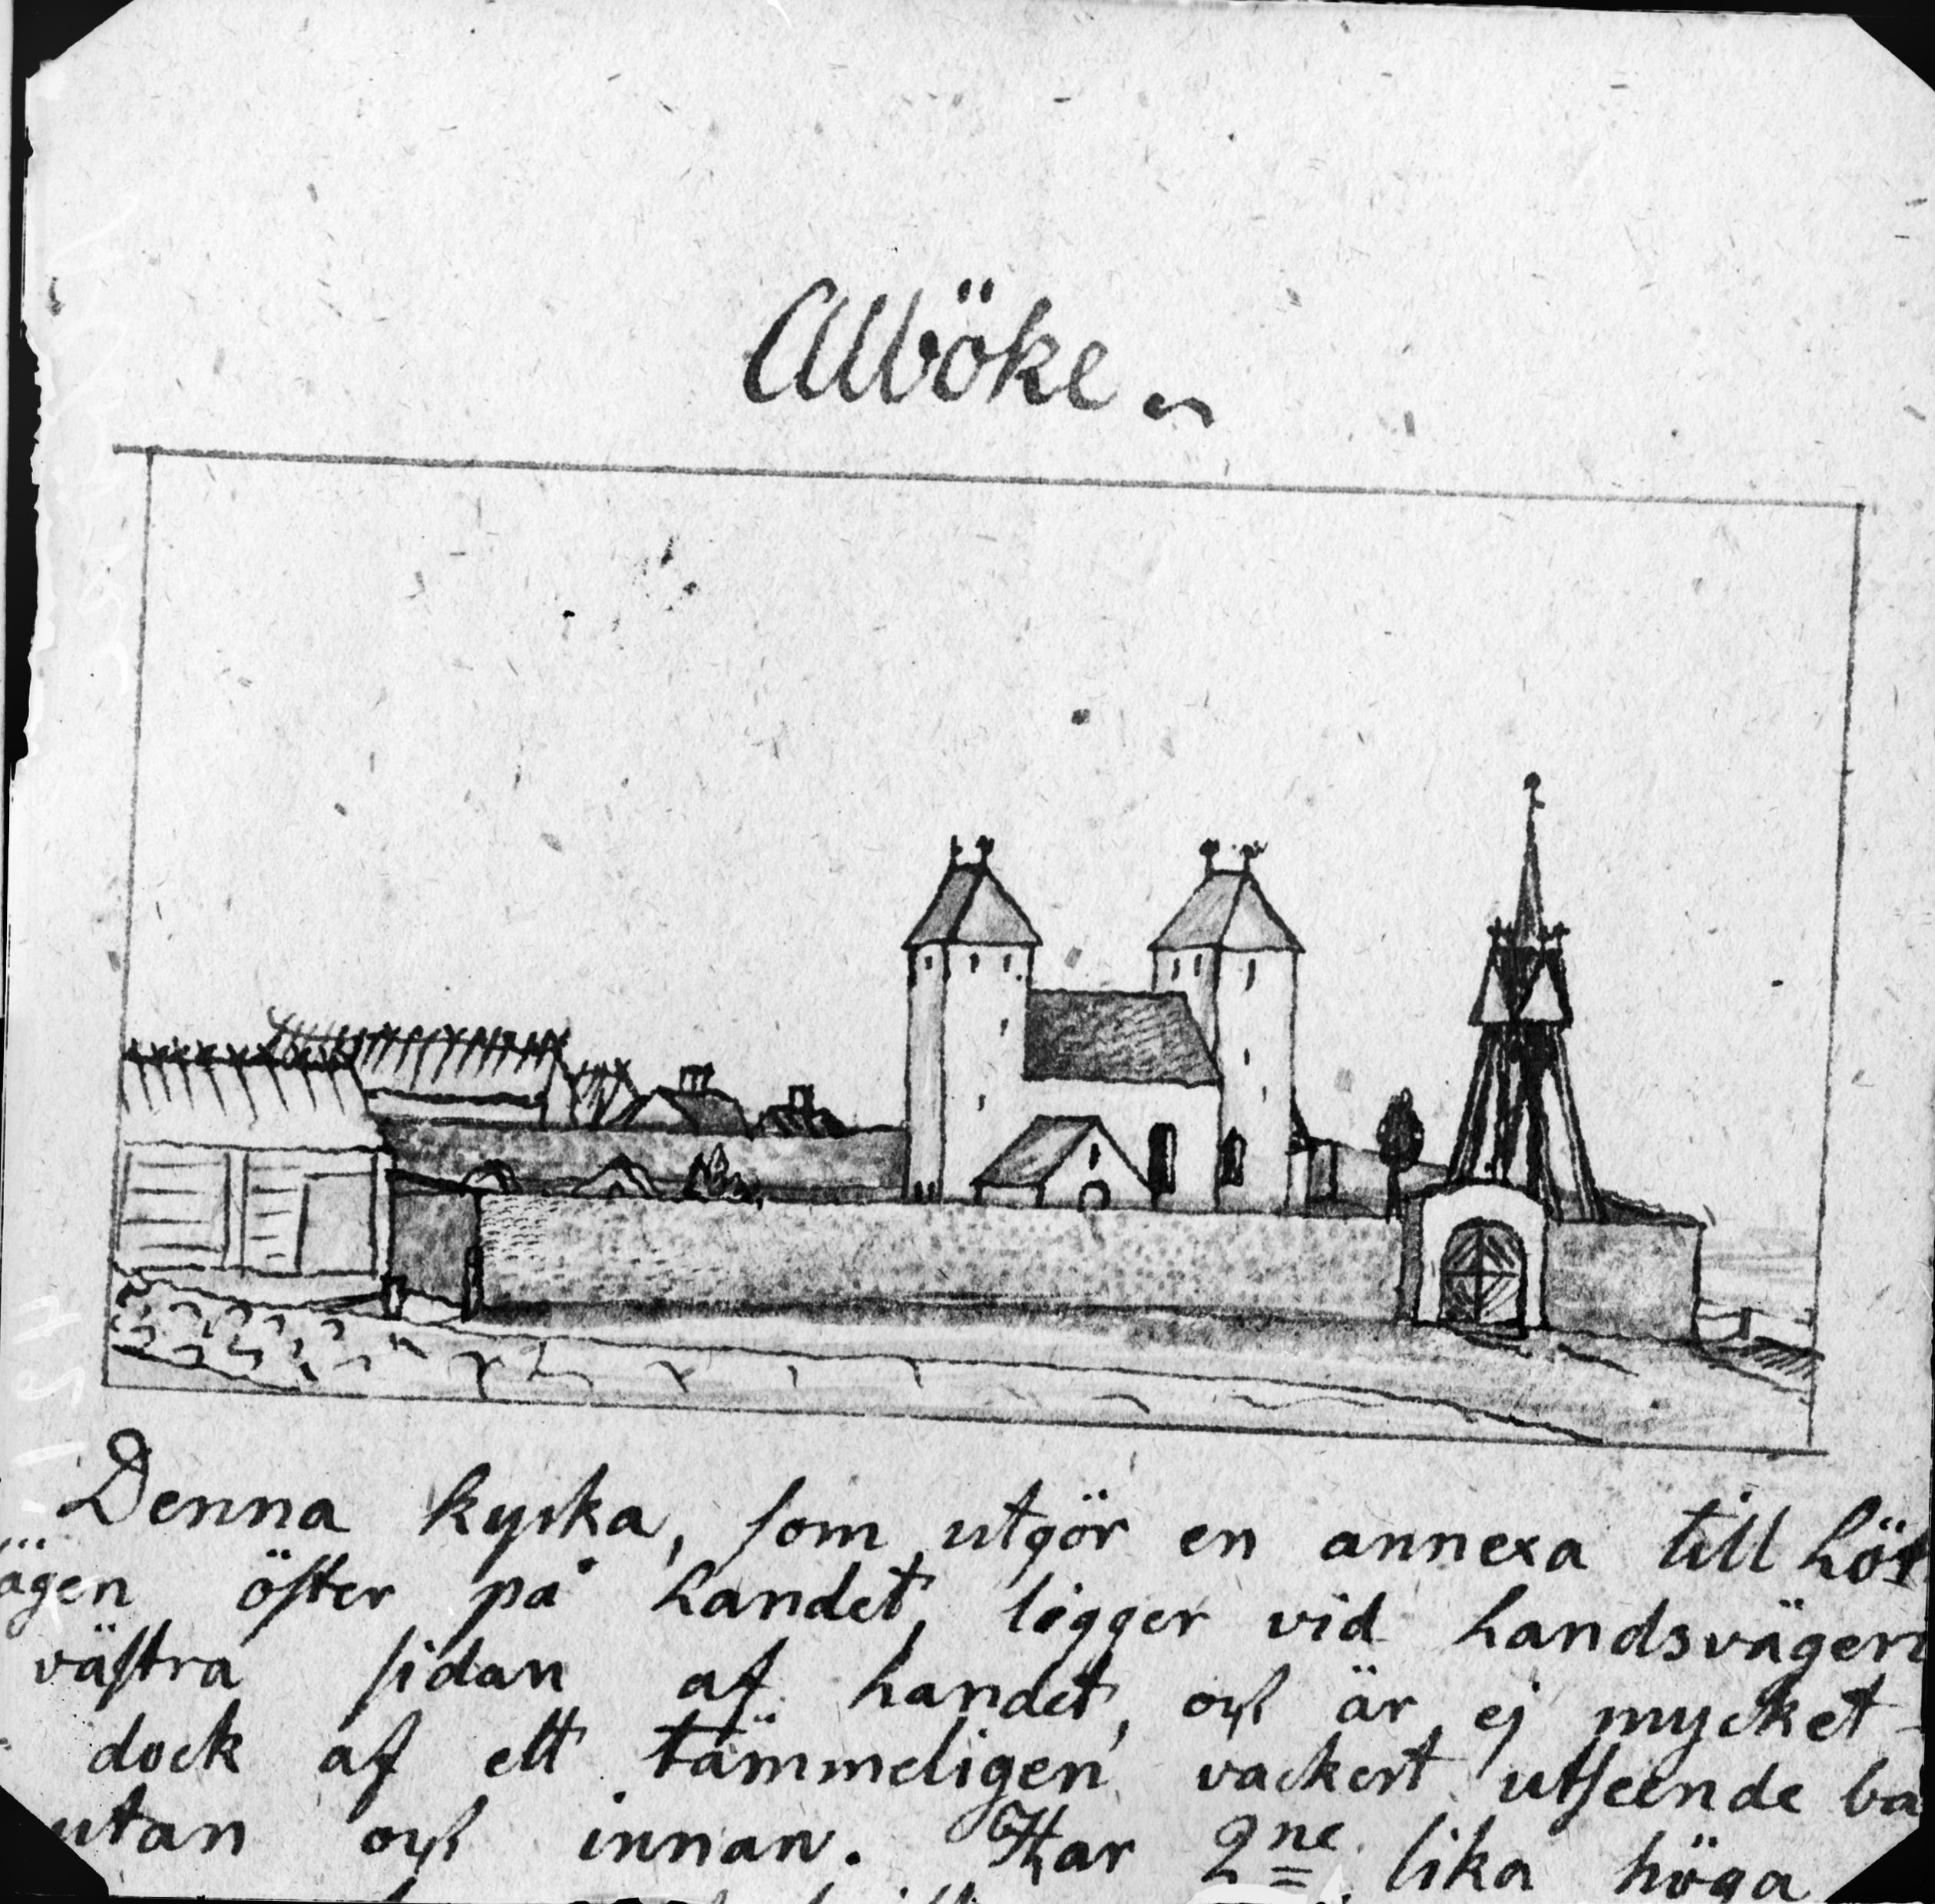 Alböke
Denna kyrka, som utgör en annexa till Hög
ägen öster på Landet, ligger vid Landsvägen
västra sidan af Landet, och är ej mycket
dock af ett tämmeligen vackert utseende ba
utan och innan. Har 2ne lika höga